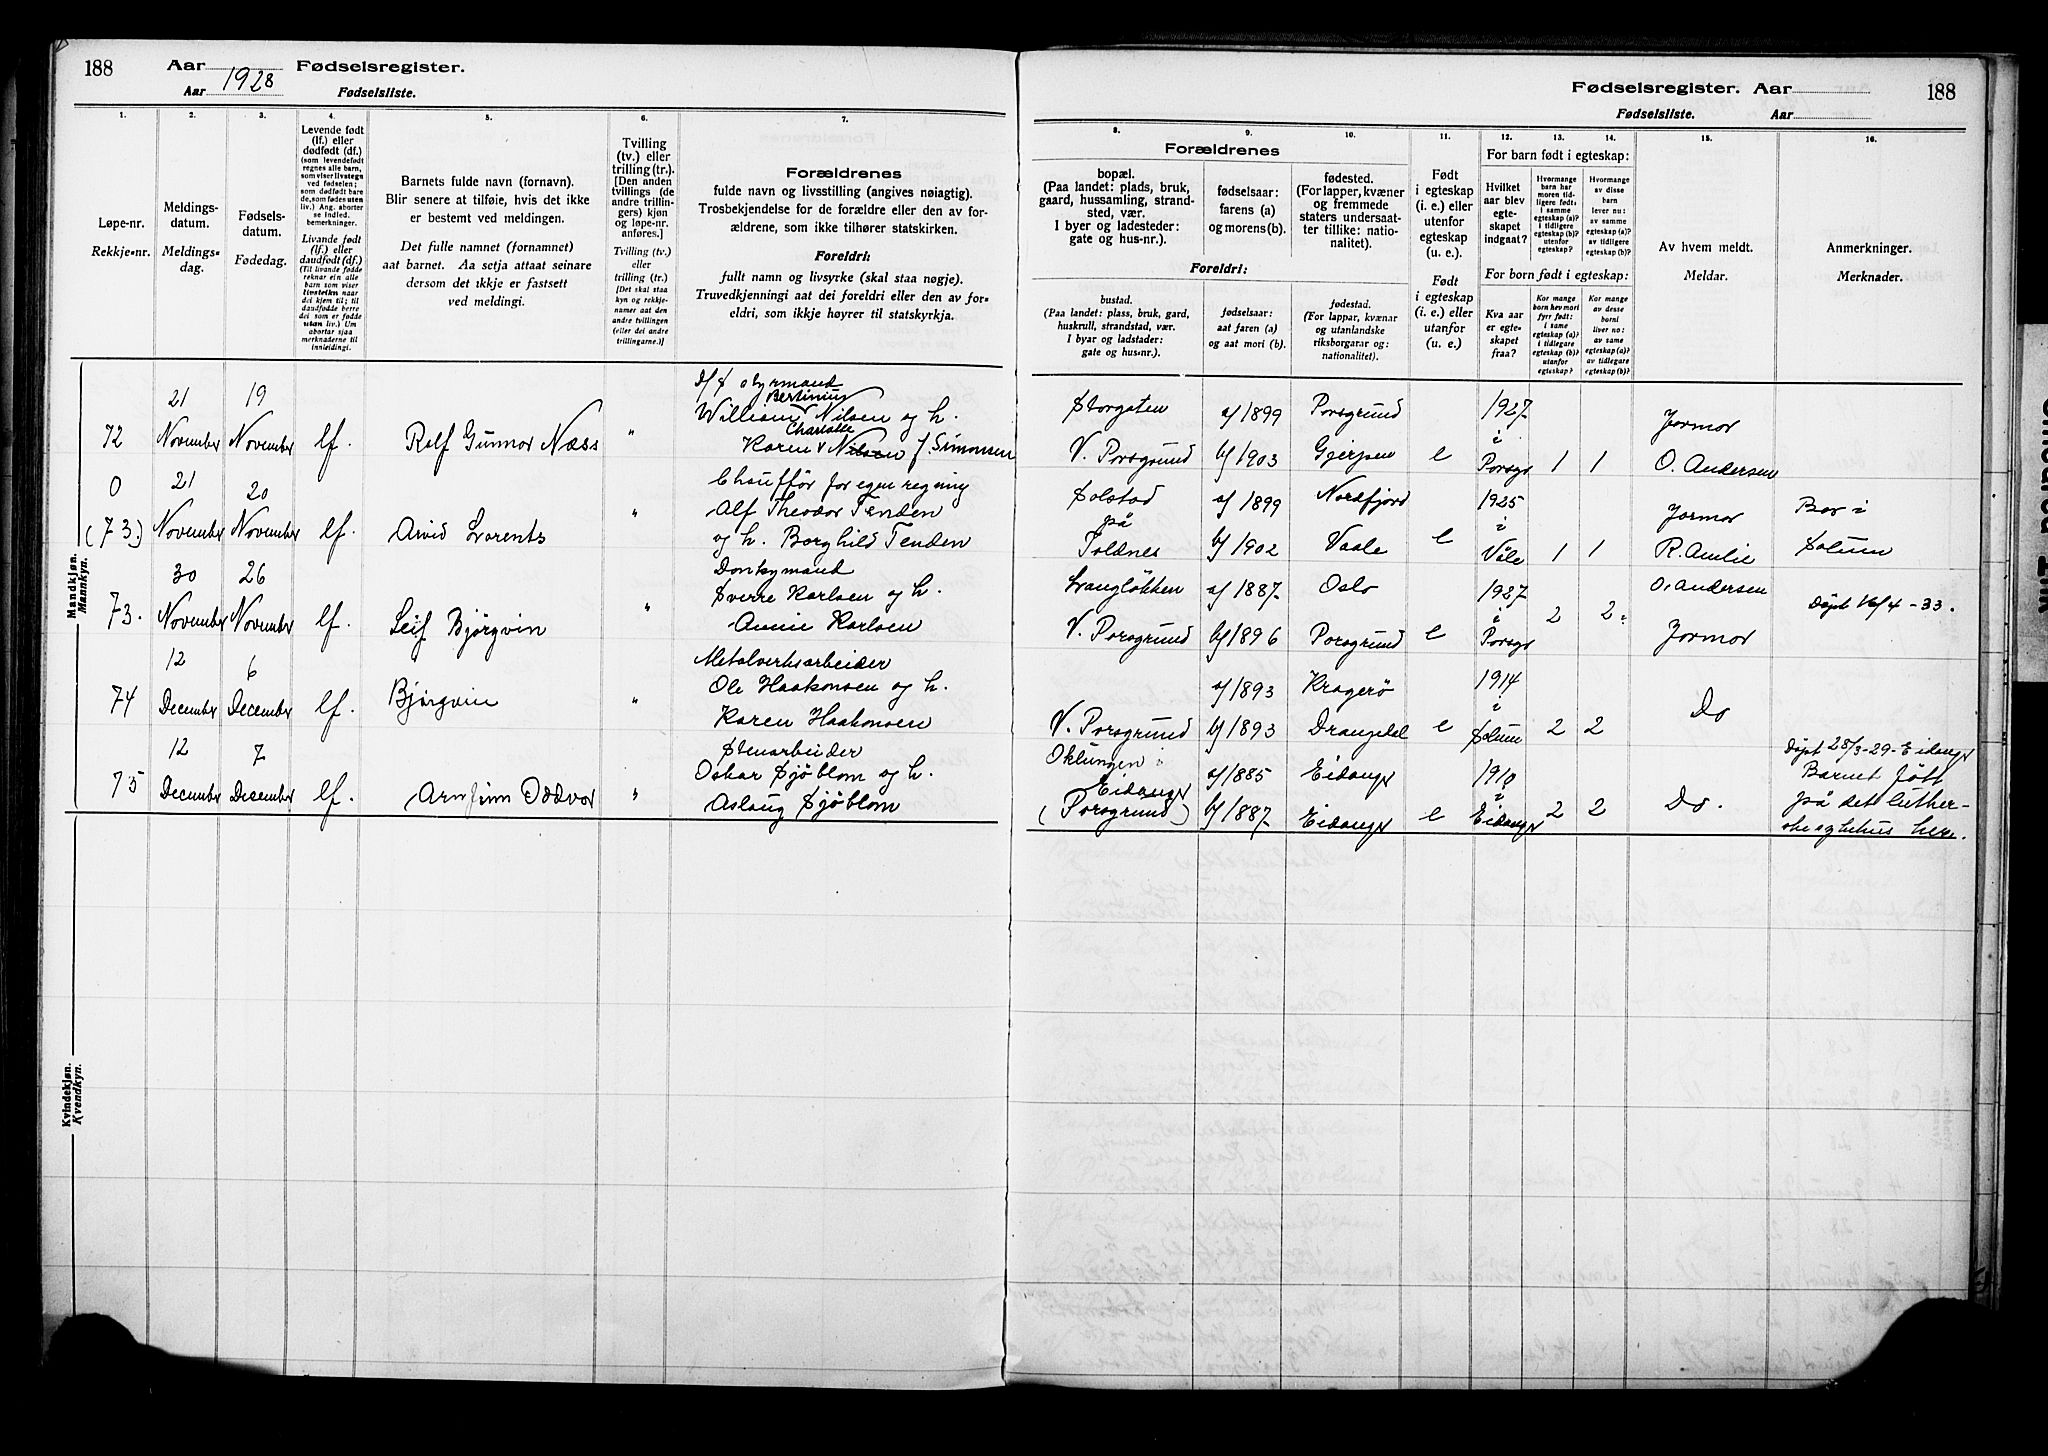 188
Aar 1928 Fødselsregister.
Aar Fødselsliste.
1.
2.
3.
4.
5.
6.
7.
Løpe-nr.
Rekkje-nr.
Meldings-
datum.
Meldings-
dag.
Fødsels-
datum.
Fødedag.
Levende født
(lf.) eller
dødfødt (df.)
(som levendefødt
regnes alle barn,
som viser livstegn
ved fødselen;
som dødfødt bare
de, som fødes uten
liv.) Ang. aborter
se indled.
bemerkninger.
Livande født
(lf.) eller
daudfødt (df.)
(Til livande fødde
reknar ein alle
barn som viser
livsteikn naar
dei kjem til; til
daudfødde berre
dei som er fødde
utan liv.) Um
abortar sjaa
merknaderne til
innleidingi.
Barnets fulde navn (fornavn).
Blir senere at tilføie, hvis det ikke
er bestemt ved meldingen.
Det fulle namnet (fornamnet)
aat barnet. Aa setja attaat seinare
dersom det ikkje er fastsett
ved meldingi.
Tvilling
(tv.) eller
trilling (tr.).
[Den anden
tvillings (de
andre trillin-
gers) kjøn
og løpe-nr.
anføres.]
Tvilling (tv.)
eller
trilling (tr.)
[Det skal staa
kyn og rekkje-
numer aat den
andre tvillingen
(eller dei andre
trillingarne.)]
Forældrenes
fulde navn og livsstilling (angives nøiagtig).
Trosbekjendelse for de forældre eller den av for-
ældrene, som ikke tilhører statskirken.
Foreldri:
fullt namn og livsyrke (skal staa nøgje).
Truvedkjenningi aat dei foreldri eller den av for-
eldri, som ikkje høyrer til statskyrkja.
Mandkjøn.
Mannkyn.
72
21
November
19
November
lf.
Rolf Gunnar Næss
"
D/S styrmand
Bertinius
William Nilsen og h.
Charlotte
Karen Nilsen f. Simonsen
0
(73.)
21
November
20
November
lf.
Arvid Lorents
"
Chauffør for egen regning
Alf Theodor Tenden
og h. Borghild Tenden
73.
30
November
26
November
lf.
Leif Bjørgvin
"
Donkymand
Sverre Karlsen og h.
Annie Karlsen
74
12
December
6
December
lf.
Bjørgvin
"
Metalverksarbeider
Ole Haakonsen og h.
Karen Haakonsen
75
12
December
7
December
lf.
Arnfinn Oddvar
"
Stenarbeider
Oskar Sjöblom og h.
Aslaug Sjöblom
Kvindekjøn.
Kvendkyn.
Fødselsregister. Aar
188
Fødselsliste. Aar
8.
9.
10.
11.
12.
13.
14.
15.
16.
Forældrenes
bopæl.
(Paa landet: plads, bruk,
gaard, hussamling, strand-
sted, vær.
I byer og ladesteder:
gate og hus-nr.).
fødselsaar:
farens (a)
og morens (b).
fødested.
(For lapper, kvæner
og fremmede
staters undersaat-
ter tillike: natio-
nalitet).
Foreldri:
bustad.
(Paa landet: plass, bruk, gard,
huskrull, strandstad, vær.
I byar og ladstader:
gate og hus-nr.).
fødselsaar:
aat faren (a)
og aat mori (b).
fødestad.
(For lappar, kvænar
og utanlandske
riksborgarar og:
nationalitet).
Født
i egteskap
(i. e.) eller
utenfor
egteskap
(u. e.).
Født
i egteskap
(i. e.) eller
utanfor
(u. e.)
For barn født i egteskap:
Hvilket
aar blev
egte-
skapet
indgaat?
Hvormange
barn har
moren tid-
ligere født:
i samme
egteskap (a)?
i tidligere
egteskap (b)?
utenfor
egteskap?
Hvormange
av disse
barn
lever nu:
av samme
egteskap (a)?
av tidligere
egteskap (b)?
For born født i egteskap:
Kva aar
er egte-
skapet
fraa?
Kor mange
born hev mori
fyrr født:
i same
egteskap (a)?
i tidlegare
egteskap (b)?
utanfor
egteskap?
Kor mange
av desse
borni
liver no:
av same
egteskap (a)?
av tidlegare
egteskap (b)?
Av hvem meldt.
Meldar.
Anmerkninger.
Merknader.
Storgaten
V. Porsgrund
a/1899
b/1903
Porsgrund
Gjerpen
e
1927
i
Porsgr
1
1
Jormor
O. Andersen
Solstad
på
Toldnes
a/1899
b/1902
Nordfjord
Vaale
e
1925
i
Våle
1
1
Jormor
R. Amlie
Bor i
Solum
Langløkken
V. Porsgrund
a/1887
b/1896
Oslo
Porsgrund
e
1927
i
Porsgr
2
2
O. Andersen
Jormor
Døpt 16/4-33.
V. Porsgrund
a/1893
b/1893
Kragerö
Drangedal
e
1914
i
Solum
2
2
Do
Oklungen i
Eidanger
(Porsgrund)
a/1885
b/1887
Eidanger
Eidanger
e
1910
i
Eidanger
2
2
Do.
Døpt 28/3-29-Eidanger
Barnet født
på det luther-
ske sykehus her.